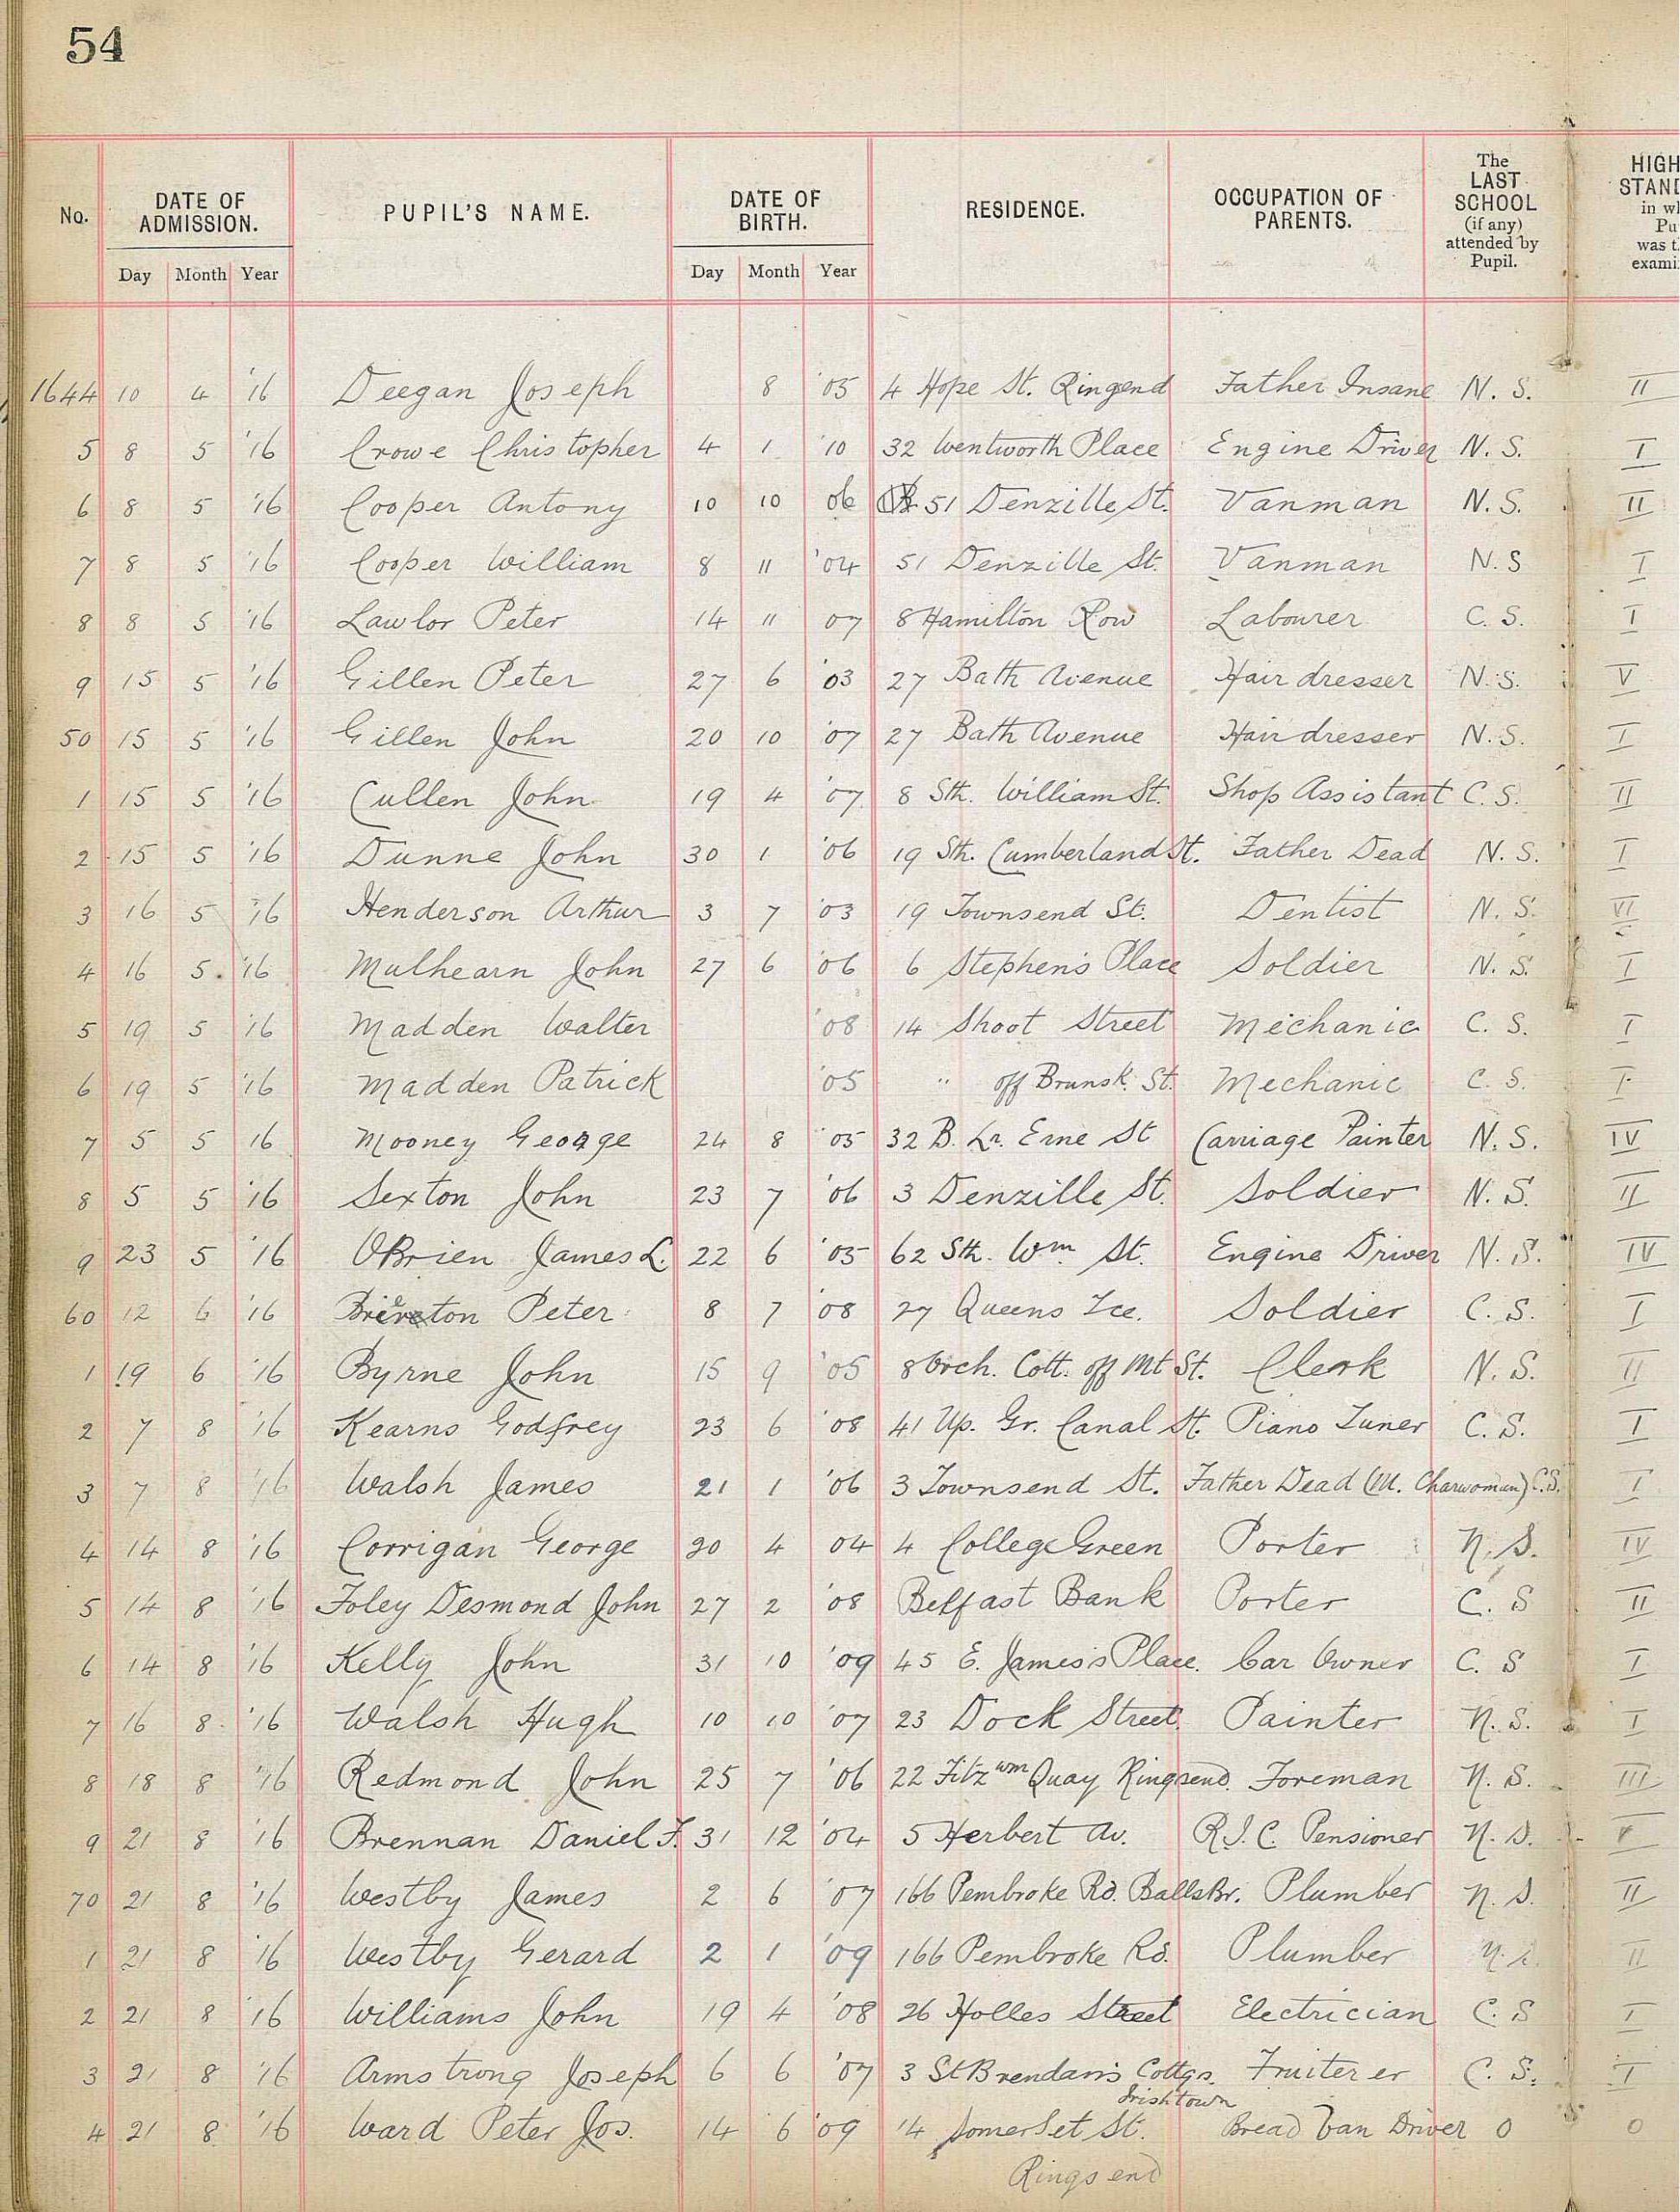 54
No. DATE OF ADMISSION. PUPIL'S NAME. DATE OF BIRTH. RESIDENCE. OCCUPATION OF PARENTS. The LAST SCHOOL (if any) attended by Pupil. HIGH STAND in wh Pu was t exami
Day Month Year Day Month Year
1644 10 4 '16 Deegan Joseph 8 '05 4 Hope St. Ringend Father Insane N. S. II
5 8 5 '16 Crowe Christopher 4 1 '10 32 Wentworth Place Engine Driver N. S. I
6 8 5 '16 Cooper Antony 10 10 06 51 Denzille St. Vanman N. S. II
7 8 5 '16 Cooper William 8 11 '04 51 Denzille St. Vanman N. S I
8 8 5 '16 Lawlor Peter 14 11 07 8 Hamilton Row Labourer C. S. I
9 15 5 '16 Gillen Peter 27 6 '03 27 Bath Avenue Hairdresser N. S. V
50 15 5 '16 Gillen John 20 10 '07 27 Bath Avenue Hairdresser N. S. I
1 15 5 '16 Cullen John 19 4 '07 8 Sth. William St. Shop Assistant C. S. II
2 15 5 '16 Dunne John 30 1 '06 19 Sth. Cumberland St. Father Dead N. S. I
3 16 5 '16 Henderson Arthur 3 7 '03 19 Townsend St. Dentist N. S. VI
4 16 5 '16 Mulhearn John 27 6 '06 6 Stephen's Place Soldier N. S. I
5 19 5 '16 Madden Walter '08 14 Shoot Street Mechanic C. S. I
6 19 5 '16 Madden Patrick '05 " off Brunsk. St. Mechanic C. S. I
7 5 5 16 Mooney George 24 8 '05 32 B. Lr. Erne St Carriage Painter N. S. IV
8 5 5 '16 Sexton John 23 7 '06 3 Denzille St. Soldier N. S. II
9 23 5 '16 OBrien James L. 22 6 '05 62 Sth. Wm. St. Engine Driver N. S. IV
60 12 6 '16 Peter 8 7 '08 27 Queens Tce. Soldier C. S. I
1 19 6 '16 Byrne John 15 9 '05 8 Orch. Cott. off Mt St. Clerk N. S. II
2 7 8 '16 Kearns Godfrey 23 6 '08 41 Up. Gr. Canal St. Piano Tuner C. S. I
3 7 8 '16 Walsh James 21 1 '06 3 Townsend St. Father Dead (M. Charwoman) C. S. I
4 14 8 '16 Corrigan George 20 4 04 4 College Green Porter N. S. IV
5 14 8 '16 Foley Desmond John 27 2 '08 Belfast Bank Porter C. S II
6 14 8 '16 Kelly John 31 10 '09 45 E. James's Place. Car Owner C. S I
7 16 8 '16 Walsh Hugh 10 10 '07 23 Dock Street Painter N. S. I
8 18 8 '16 Redmond John 25 7 '06 22 Fitzwm Quay Ringsend. Foreman N. S. III
9 21 8 '16 Brennan Daniel F. 31 12 '04 5 Herbert Av. R.I.C. Pensioner N. S. V
70 21 8 '16 Westby James 2 6 '07 166 Pembroke Rd. BallsBr. Plumber N. S. II
1 21 8 '16 Westby Gerard 2 1 '09 166 Pembroke Rd. Plumber N. S. II
2 21 8 '16 Williams John 19 4 '08 26 Holles Street Electrician C. S I
3 21 8 '16 Armstrong Joseph 6 6 '07 3 St Brendan's Cottgs. Fruiterer C. S. I
Irishtown
4 21 8 '16 Ward Peter Jos. 14 6 '09 14 Somerset St. Bread Van Driver O O
Ringsend